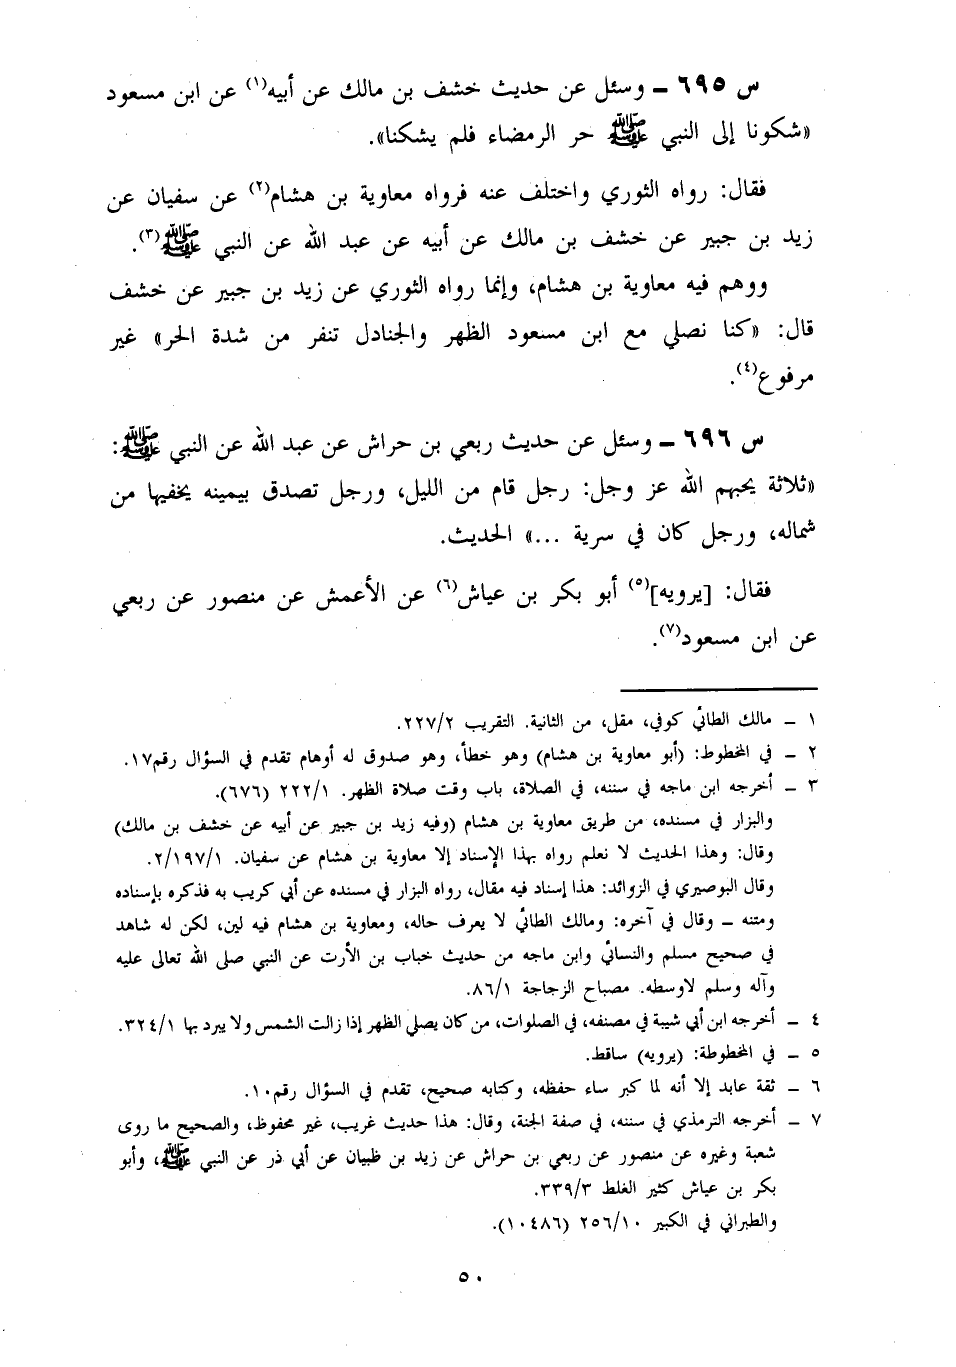 س ٦٩٥ – وسئل عن حديث خشف بن مالك عن أبيه(١) عن ابن مسعود
«شكونا إلى النبي ﷺ حر الرمضاء فلم يشكنا».
فقال: رواه الثوري واختلف عنه فرواه معاوية بن هشام(٢) عن سفيان عن
زيد بن جبير عن خشف بن مالك عن أبيه عن عبد الله عن النبي ﷺ(٣).
ووهم فيه معاوية بن هشام، وإنما رواه الثوري عن زيد بن جبير عن خشف
قال: «كنا نصلي مع ابن مسعود الظهر والجنادل تنفر من شدة الحر» غير
مرفوع(٤).
س ٦٩٦ – وسئل عن حديث ربعي بن حراش عن عبد الله عن النبي ﷺ:
«ثلاثة يحبهم الله عز وجل: رجل قام من الليل، ورجل تصدق بيمينه يخفيها من
شماله، ورجل كان في سرية ...» الحديث.
فقال: [يرويه](٥) أبو بكر بن عياش(٦) عن الأعمش عن منصور عن ربعي
عن ابن مسعود(٧).
١ – مالك الطائي كوفي، مقل، من الثانية. التقريب ٢٢٧/٢.
٢ – في المخطوط: (أبو معاوية بن هشام) وهو خطأ، وهو صدوق له أوهام تقدم في السؤال رقم١٧.
٣ – أخرجه ابن ماجه في سننه، في الصلاة، باب وقت صلاة الظهر. ٢٢٢/١ (٦٧٦).
والبزار في مسنده، من طريق معاوية بن هشام (وفيه زيد بن جبير عن أبيه عن خشف بن مالك)
وقال: وهذا الحديث لا نعلم رواه بهذا الإسناد إلا معاوية بن هشام عن سفيان. ٢/١٩٧/١.
وقال البوصيري في الزوائد: هذا إسناد فيه مقال، رواه البزار في مسنده عن أبي كريب به فذكره بإسناده
ومتنه – وقال في آخره: ومالك الطائي لا يعرف حاله، ومعاوية بن هشام فيه لين، لكن له شاهد
في صحيح مسلم والنسائي وابن ماجه من حديث خباب بن الأرت عن النبي صلى الله تعالى عليه
وآله وسلم لاوسطه. مصباح الزجاجة ٨٦/١.
٤ – أخرجه ابن أبي شيبة في مصنفه، في الصلوات، من كان يصلي الظهر إذا زالت الشمس ولا يبرد بها ٣٢٤/١.
٥ – في المخطوطة: (يرويه) ساقط.
٦ – ثقة عابد إلا أنه لما كبر ساء حفظه، وكتابه صحيح، تقدم في السؤال رقم١٠.
٧ – أخرجه الترمذي في سننه، في صفة الجنة، وقال: هذا حديث غريب، غير محفوظ، والصحيح ما روى
شعبة وغيره عن منصور عن ربعي بن حراش عن زيد بن ظبيان عن أبي ذر عن النبي ﷺ، وأبو
بكر بن عياش كثير الغلط ٣٣٩/٣.
والطبراني في الكبير ٢٥٦/١٠ (١٠٤٨٦).
٥٠